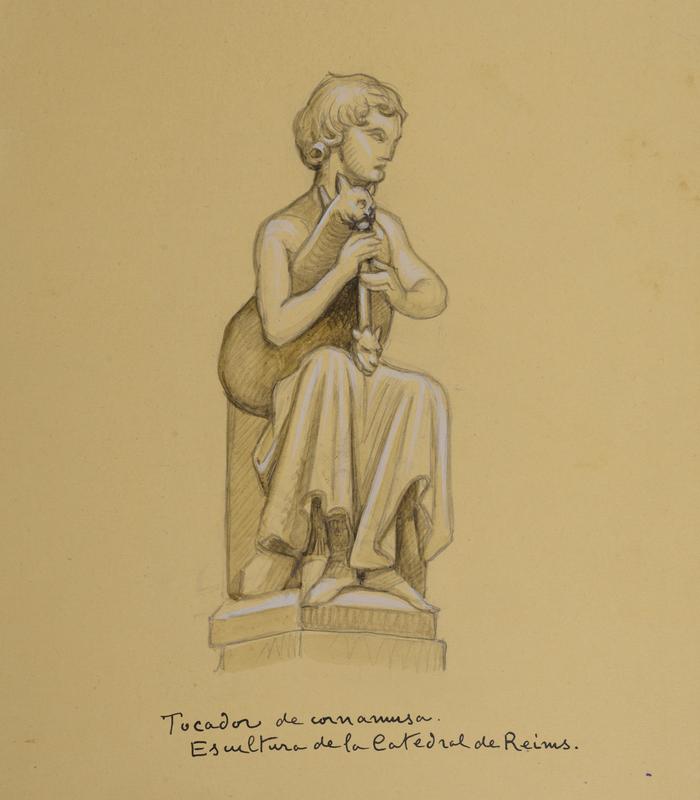 Tocador de cornamusa.
Escultura de la Catedral de Reims.